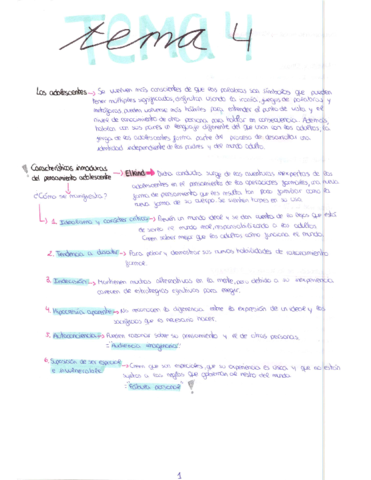 tema 4
Los adolescentes → Se vuelven más conscientes de que las palabras son símbolos que pueden
tener múltiples significados, disfrutan usando la ironía, juegos de palabras y
metáforas puedan volverse más hábiles para entender el punto de vista y el
nivel de conocimiento de otra persona para hablar en consecuencia. Además,
hablan con sus pares en lenguaje diferente del que usan con los adultos, la
jerga de los adolescentes forma parte del proceso de desarrollar una
identidad independiente de los padres y del mundo adulto.
Características inmaduras → Elkind → Dicha conducta surge de las
del pensamiento adolescente adolescentes en el pensamiento de las operaciones formales, una nueva
¿Cómo se manifiesta? forma de pensamiento que les resulta tan para como la
nueva forma de su cuerpo. Se sienten torpes en su uso.
1. Idealismo y carácter crítico → un mundo ideal y se dan cuentas de lo lejos que está
de serlo el mundo real, responsabilizando a los adultos.
Creen saber mejor que los adultos cómo funciona el mundo.
2. Tendencia a discutir → Para probar y demostrar sus nuevas habilidades de razonamiento
formal.
3. Indecisión → Mantienen muchas alternativas en la mente, pero debido a su inexperiencia
carecen de estrategias efectivas para elegir.
4. Hipocresía aparente → No reconocen la diferencia entre la expresión de un ideal y los
sacrificios que es necesario hacer.
5. Autoconciencia → Pueden razonar sobre su pensamiento y el de otras personas.
"Audiencia imaginaria"
6. Suposición de ser especial
e invulnerable → Creen que son especiales, que su experiencia es única y que no están
sujetos a las reglas que gobiernan al resto del mundo.
"Fábula personal"
1